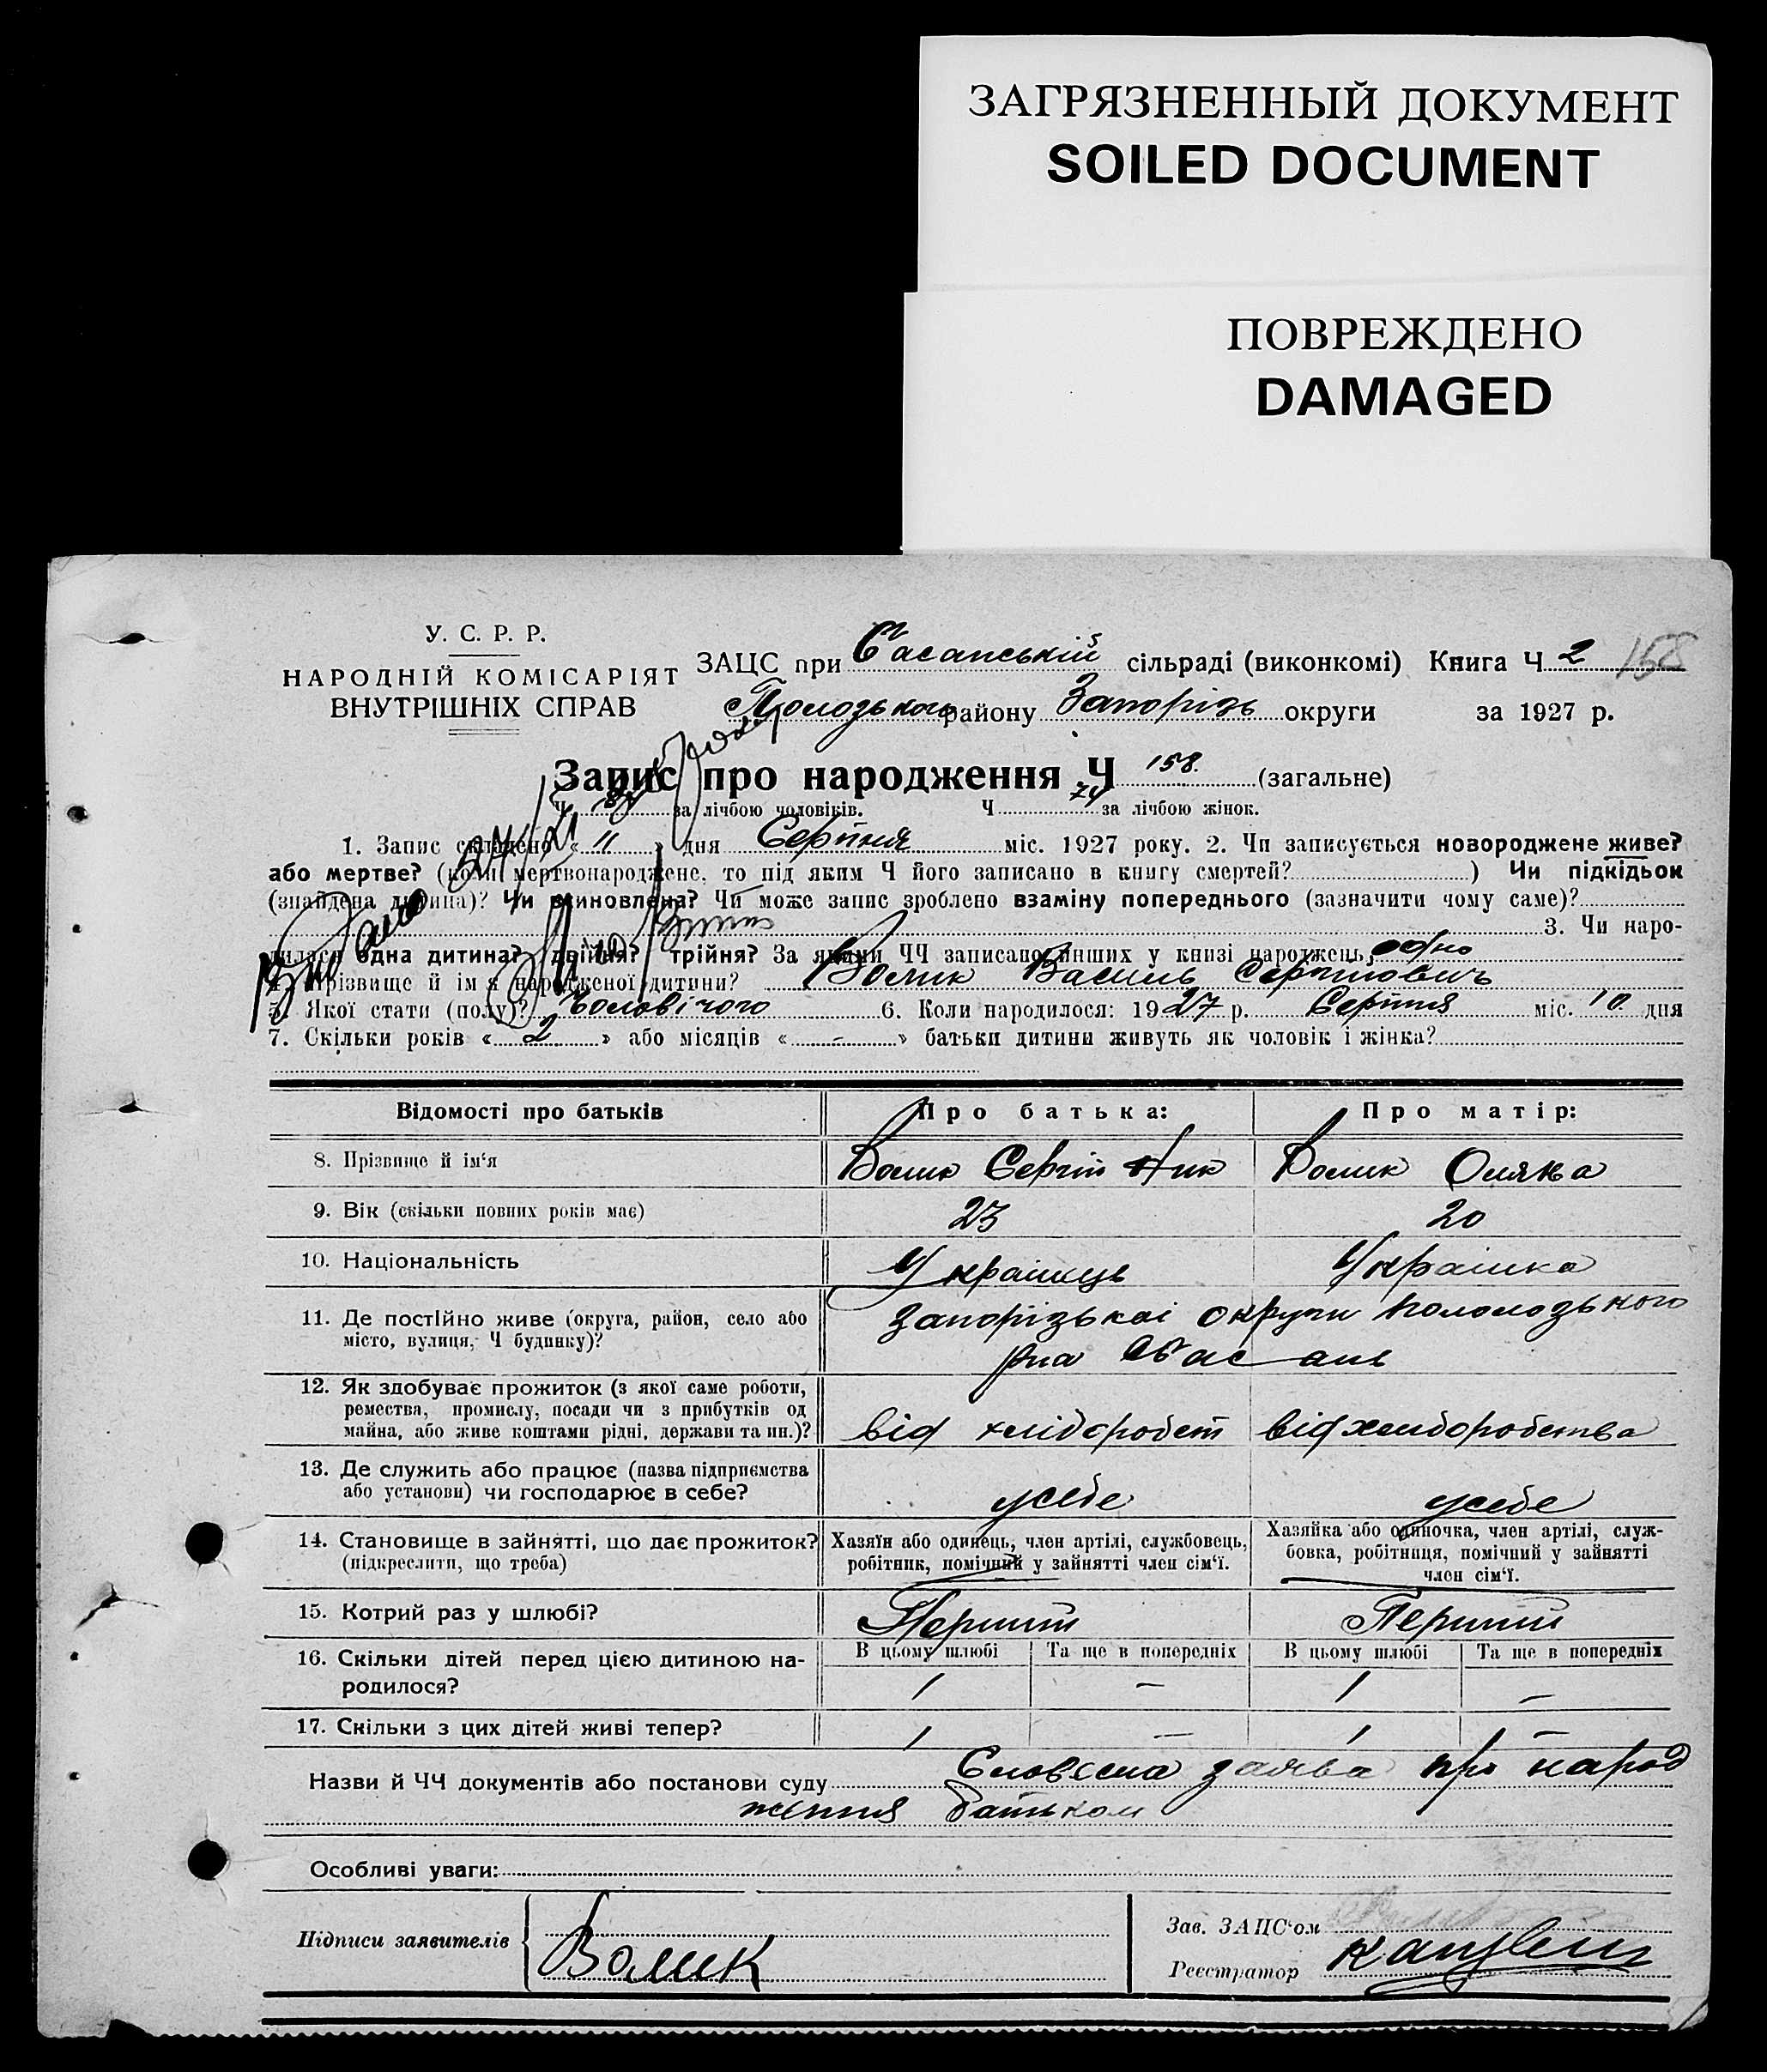 ЗАГРЯЗНЕННЫЙ ДОКУМЕНТ
SOILED DOCUMENT
ПОВРЕЖДЕНО
DAMAGED
У. С. Р. Р.
НАРОДНІЙ КОМІСАРІЯТ
ВНУТРІШНІХ СПРАВ
ЗАЦС при Басанській сільраді (виконкомі) Книга Ч 2 158
району Запорізь округи за 1927 р.
Запис про народження Ч 158. (загальне)
Ч за лічбою чоловіків. Ч 74 за лічбою жінок.
1. Запис складено « 11 » дня Серпня міс. 1927 року. 2. Чи записується новороджене живе?
або мертве? (коли мертвонароджене, то під яким Ч його записано в книгу смертей? ) Чи підкідьок
(знайдена дитина)? Чи всиновлена? Чи може запис зроблено взаміну попереднього (зазначити чому саме)?
3. Чи наро-
дилася одна дитина? двійня? трійня? За якими ЧЧ записано инших у книзі народжень, одно
4. Прізвище й ім'я народженої дитини? Волик Василь Сергійович
5. Якої стати (полу)? Чоловічого 6. Коли народилося: 1927 р. Серпня міс. 10 дня
7. Скільки років « 2 » або місяців « - » батьки дитини живуть як чоловік і жінка?
Відомості про батьків Про батька: Про матір:
8. Прізвище й ім'я Волик Сергій Ник Волик Оляна
9. Вік (скільки повних років має) 23 20
10. Національність Украінець Украінка
11. Де постійно живе (округа, район, село або Запорізькоі округи Пологозького
місто, вулиця, Ч будинку)?
12. Як здобуває прожиток (з якої саме роботи,
ремества, промислу, посади чи з прибутків од
майна, або живе коштами рідні, держави та ин.)? від хліборобст від хліборобства
13. Де служить або працює (назва підприємства
або установи) чи господарює в себе? усебе усебе
14. Становище в зайнятті, що дає прожиток? Хазяїн або одинець, член артілі, службовець, Хазяйка або одиночка, член артілі, служ-
(підкреслити, що треба) робітник, помічний у зайнятті член сім'ї. бовка, робітниця, помічний у зайнятті
член сім'ї.
15. Котрий раз у шлюбі? Перший Перший
16. Скільки дітей перед цією дитиною на- В цьому шлюбі Та ще в попередніх В цьому шлюбі Та ще в попередніх
родилося? 1 — 1 —
17. Скільки з цих дітей живі тепер? 1 — 1 —
Назви й ЧЧ документів або постанови суду Словесна заява про народ
ження батьком
Особливі уваги:
Підписи заявителів Волик
Зав. ЗАЦС'ом
Реєстратор